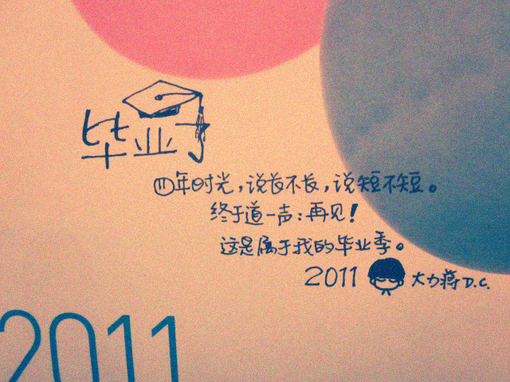 毕业了
四年时光，说长不长，说短不短。
终于道一声：再见！
这是属于我的毕业季。
2011 大力蒋 D.C.
2011